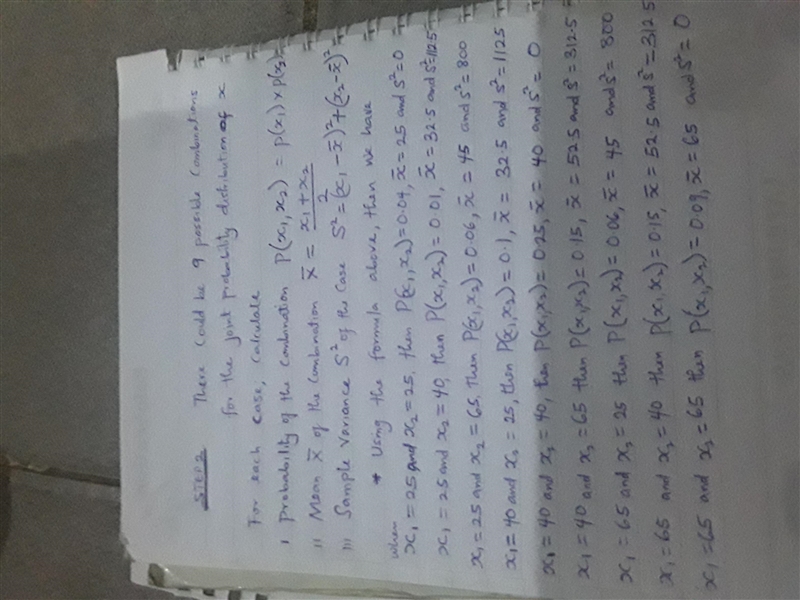 STEP 2 There could be 9 possible combinations
for the joint probability distribution of x
For each case, calculate
i Probability of the combination P(x₁, x₂) = p(x₁) × p(x₂)
ii Mean x̄ of the combination x̄ = (x₁ + x₂)/2
iii Sample variance S² of the case S² = (x₁ - x̄)² + (x₂ - x̄)²
* Using the formula above, then we have
when
x₁ = 25 and x₂ = 25, then P(x₁, x₂) = 0.04, x̄ = 25 and S² = 0
x₁ = 25 and x₂ = 40, then P(x₁, x₂) = 0.01, x̄ = 32.5 and S² = 112.5
x₁ = 25 and x₂ = 65, then P(x₁, x₂) = 0.06, x̄ = 45 and S² = 800
x₁ = 40 and x₂ = 25, then P(x₁, x₂) = 0.1, x̄ = 32.5 and S² = 1125
x₁ = 40 and x₂ = 40, then P(x₁, x₂) = 0.25, x̄ = 40 and S² = 0
x₁ = 40 and x₂ = 65 then P(x₁, x₂) = 0.15, x̄ = 52.5 and S² = 312.5
x₁ = 65 and x₂ = 25 then P(x₁, x₂) = 0.06, x̄ = 45 and S² = 800
x₁ = 65 and x₂ = 40 then P(x₁, x₂) = 0.15, x̄ = 52.5 and S² = 312.5
x₁ = 65 and x₂ = 65 then P(x₁, x₂) = 0.09, x̄ = 65 and S² = 0